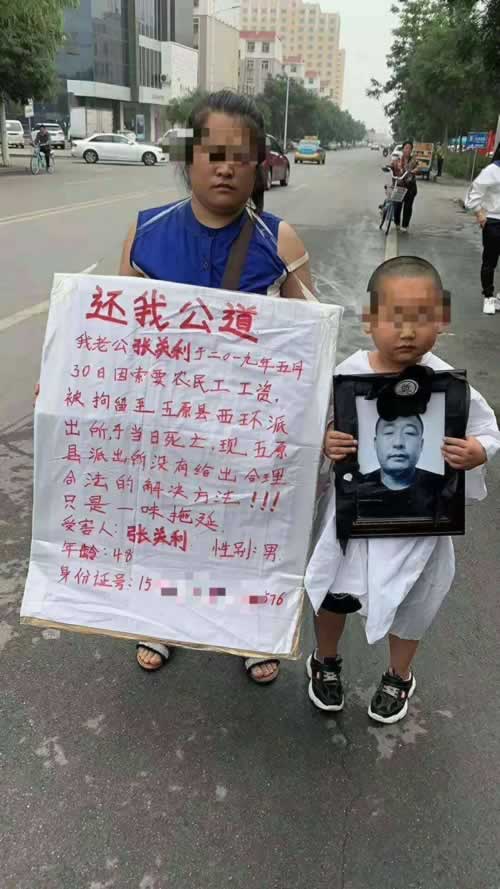 还我公道
我老公张美利于二〇一九年五月
30日因索要农民工工资,
被拘留至五原县西环派
出所,于当日死亡,现五原
县派出所没有给出合理
合法的解决方法!!!
只是一味拖延
受害人:张美利
年龄:48 性别:男
身份证号:15 576